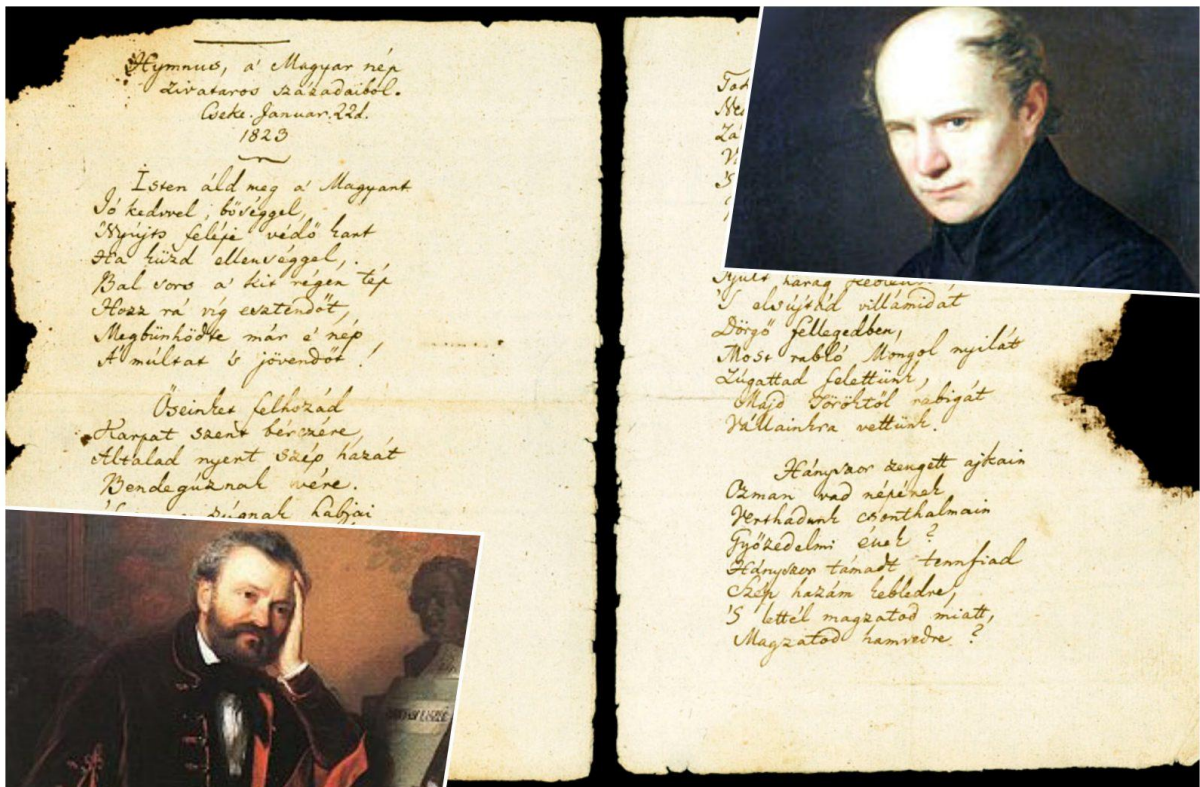 Hymnus, a' Magyar nép
zivataros századaiból.
Cseke. Januar. 22d.
1823
Isten áld meg a' Magyart
Jó kedvvel, bőséggel,
Nyújts feléje védő kart
Ha küzd ellenséggel,
Bal sors a' kit régen tép
Hozz rá víg esztendőt,
Megbűnhödte már e' nép
A' múltat 's jövendőt!
Őseinket felhozád
Kárpát szent bérczére
Általad nyert szép hazát
Bendegúznak vére.
zúgnak habjai
harag
'S elsújtád villámidat
Dörgő fellegedben,
Most rabló Mongol nyilát
Zúgattad felettünk,
Majd Töröktől rabigát
Vállainkra vettünk.
Hányszor zengett ajkain
Ozman vad népének
Verthadunk csonthalmain
Győzedelmi ének?
Hányszor támadt tennfiad
Szép hazám kebledre,
'S lettél magzatod miatt,
Magzatod hamvedre?